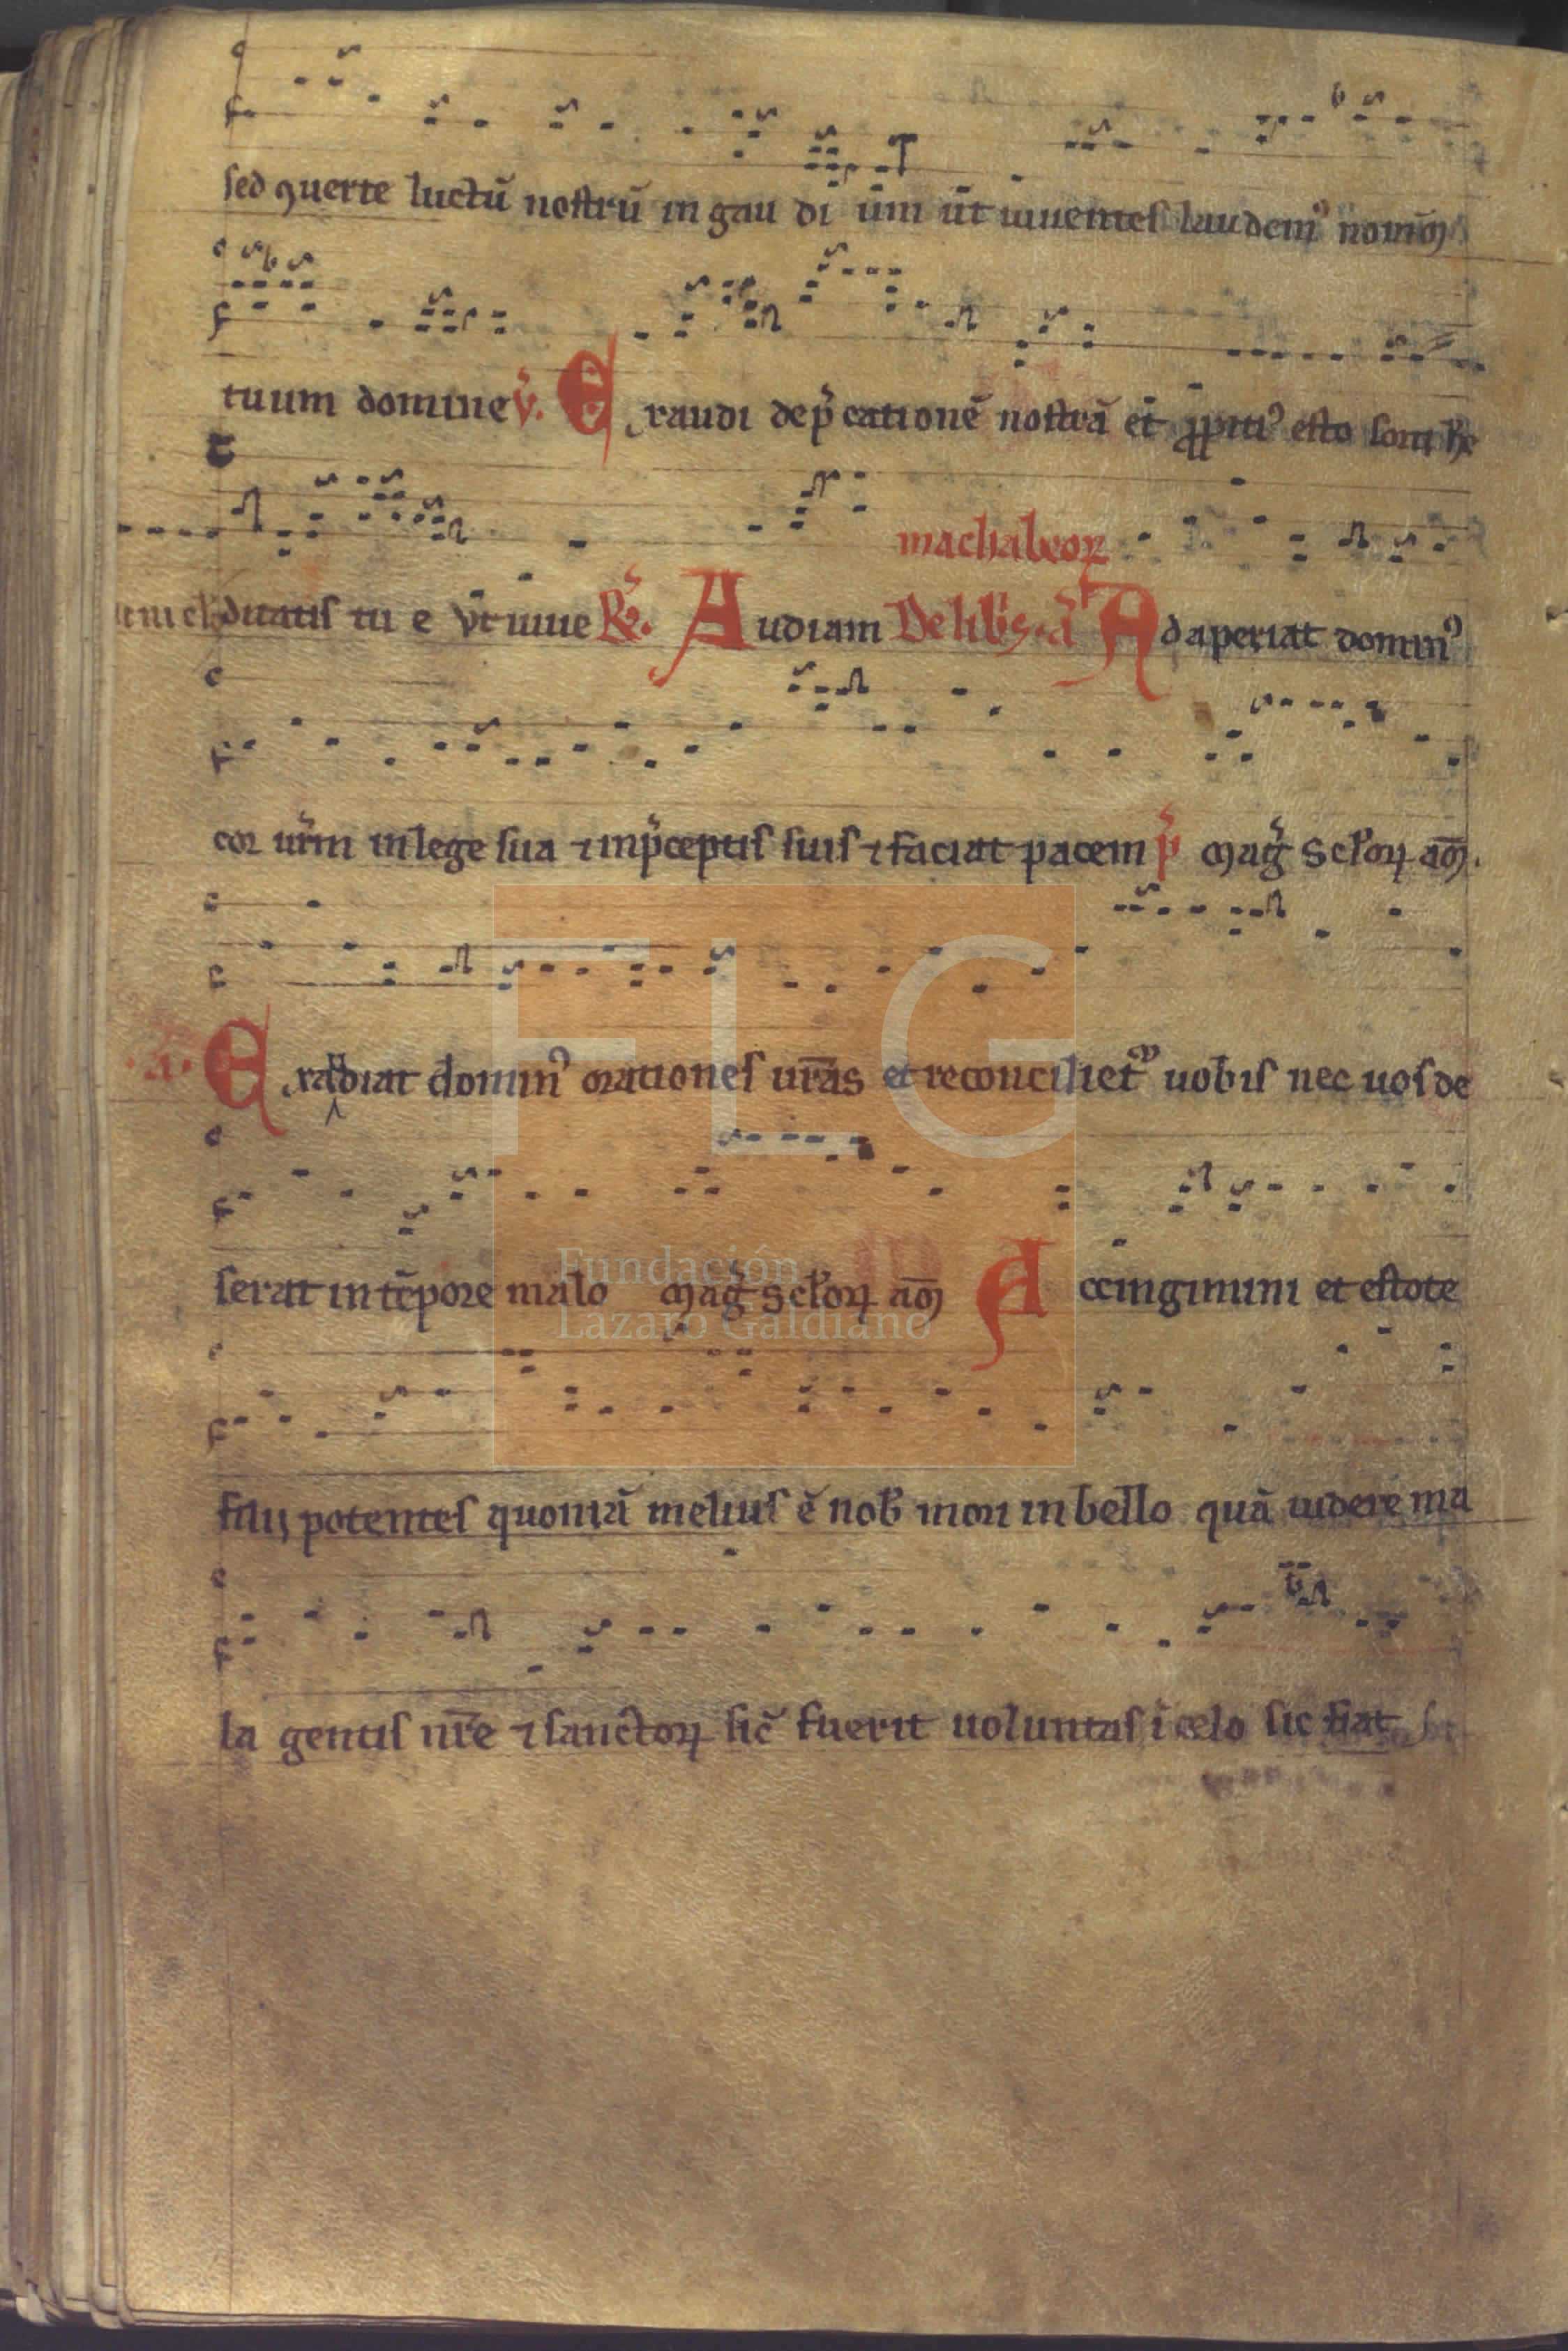 sed ꝯuerte luctū nostrū in gau di ūm ūt uiuentes laudemꝰ nom̄
tuum domine v̓. Exaudi dep̓cationē nostrā et ꝓpitiꝰ esto sorti
machabeoꝝ
ditatis tu e vt uiue R̓. Audiam De lib̓is. a Adaperiat dominꝰ
cor ur̄m in lege sua ⁊ in p̓ceptis suis ⁊ faciat pacem p̓ mag̓ scl̓oꝝ am̄.
.a. Exaudiat dominꝰ orationes ur̄as et reconciliet᷑ uobis nec uos de
serat in tēpore malo mag̓ scl̓oꝝ am̄ Accingimini et estote
filii potentes quoniā melius ē nob̓ mori in bello quā uidere ma
la gentis nr̄e ⁊ sanctoꝝ sic̄ fuerit uoluntas ī celo sic fiat
FLG
Fundación
Lázaro Galdiano